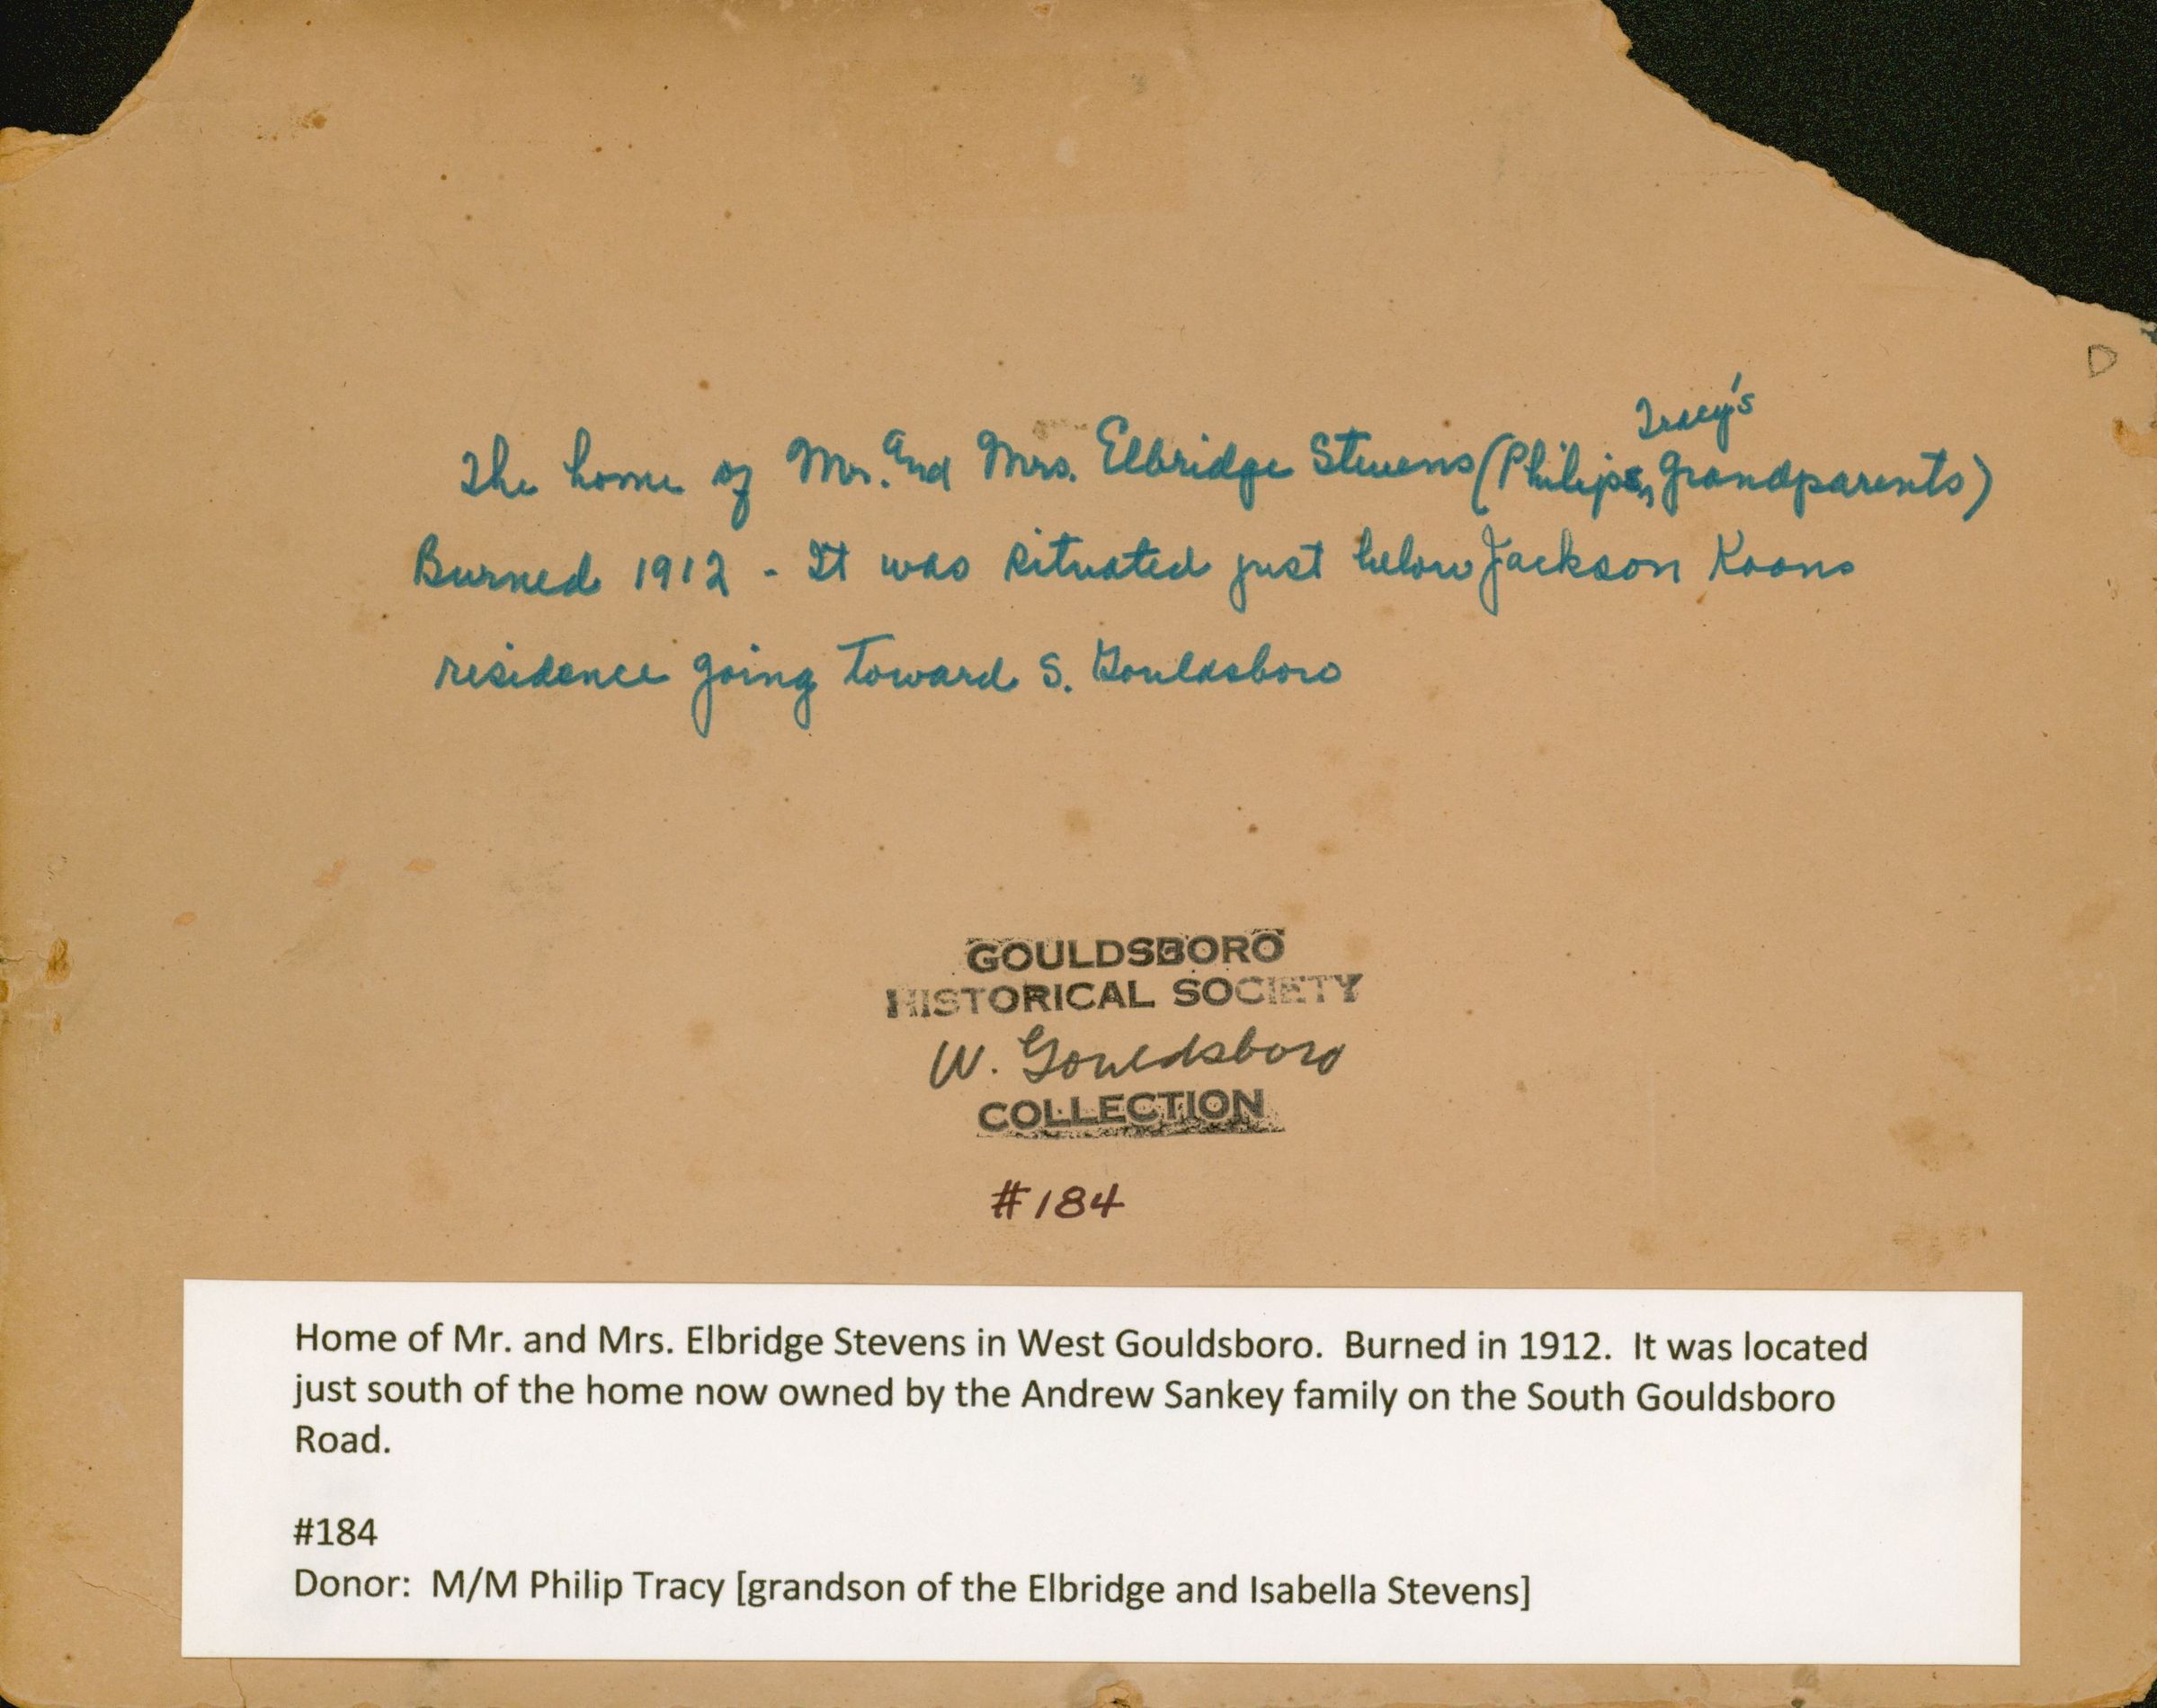 D
Tracy's
The home of Mr. and Mrs. Elbridge Stevens (Philip Grandparents)
Burned 1912 - It was situated just below Jackson Koons
residence going toward S. Gouldsboro
GOULDSBORO
HISTORICAL SOCIETY
W. Gouldsboro
COLLECTION
#184
Home of Mr. and Mrs. Elbridge Stevens in West Gouldsboro. Burned in 1912. It was located
just south of the home now owned by the Andrew Sankey family on the South Gouldsboro
Road.
#184
Donor: M/M Philip Tracy [grandson of the Elbridge and Isabella Stevens]